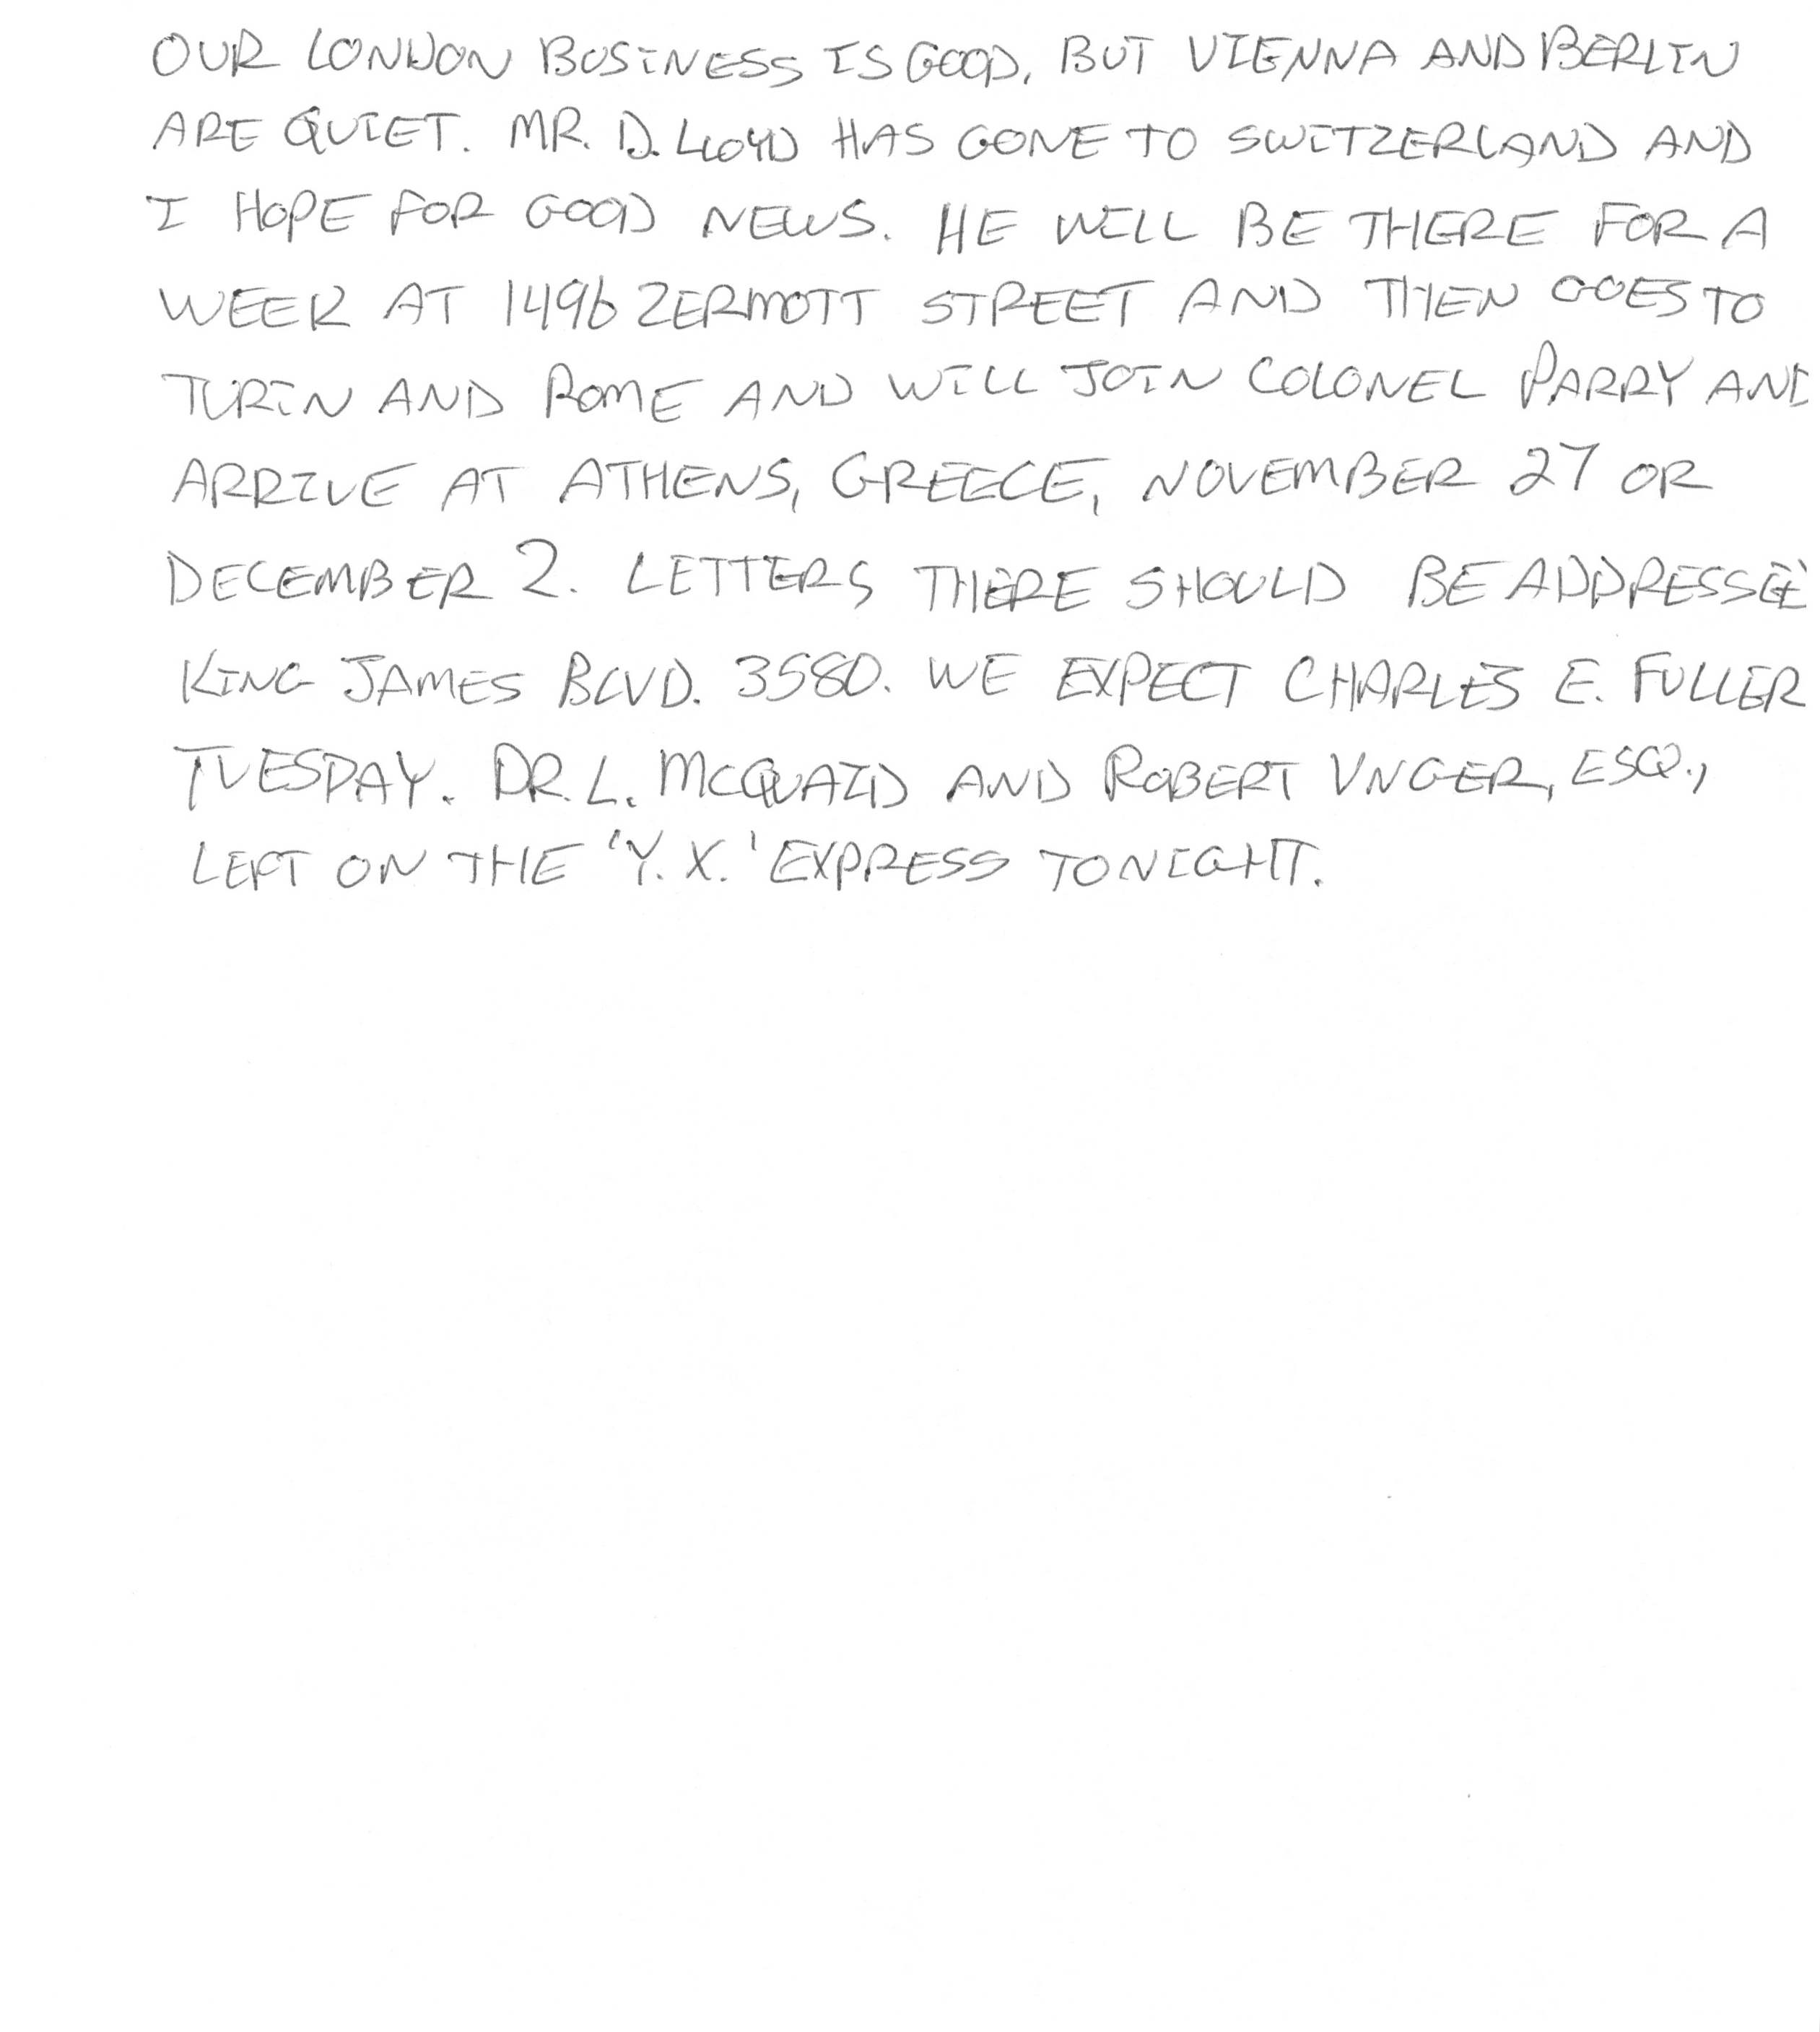 OUR LONDON BUSINESS IS GOOD, BUT VIENNA AND BERLIN
ARE QUIET. MR. D. LLOYD HAS GONE TO SWITZERLAND AND
I HOPE FOR GOOD NEWS. HE WILL BE THERE FOR A
WEEK AT 1496 ZERMOTT STREET AND THEN GOES TO
TURIN AND ROME AND WILL JOIN COLONEL PARRY AND
ARRIVE AT ATHENS, GREECE, NOVEMBER 27 OR
DECEMBER 2. LETTERS THERE SHOULD BE ADDRESSE
KING JAMES BLVD. 3580. WE EXPECT CHARLES E. FULLER
TUESDAY. DR. L. MCQUAID AND ROBERT UNGER, ESQ.,
LEFT ON THE 'Y.X.' EXPRESS TONIGHT.